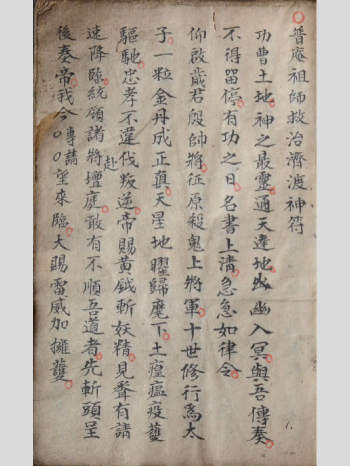 普庵祖師救治濟渡神符
功曹土地神之最靈通天達地出幽入冥與吾傳奏
不得留停有功之日名書上清急急如律令
仰啟歲君殷帥將征原殺鬼上將軍十世修行為太
子一粒金丹成正真天星地曜歸麾下土瘟瘟疫護
驅馳忠孝不違伐叛逆帝賜黃鉞斬妖精見聲有請
赴
速降臨統領諸將壇庭敢有不順吾道者先斬頭呈
後奏帝我今專請〇〇望來臨大賜雷威加擁護